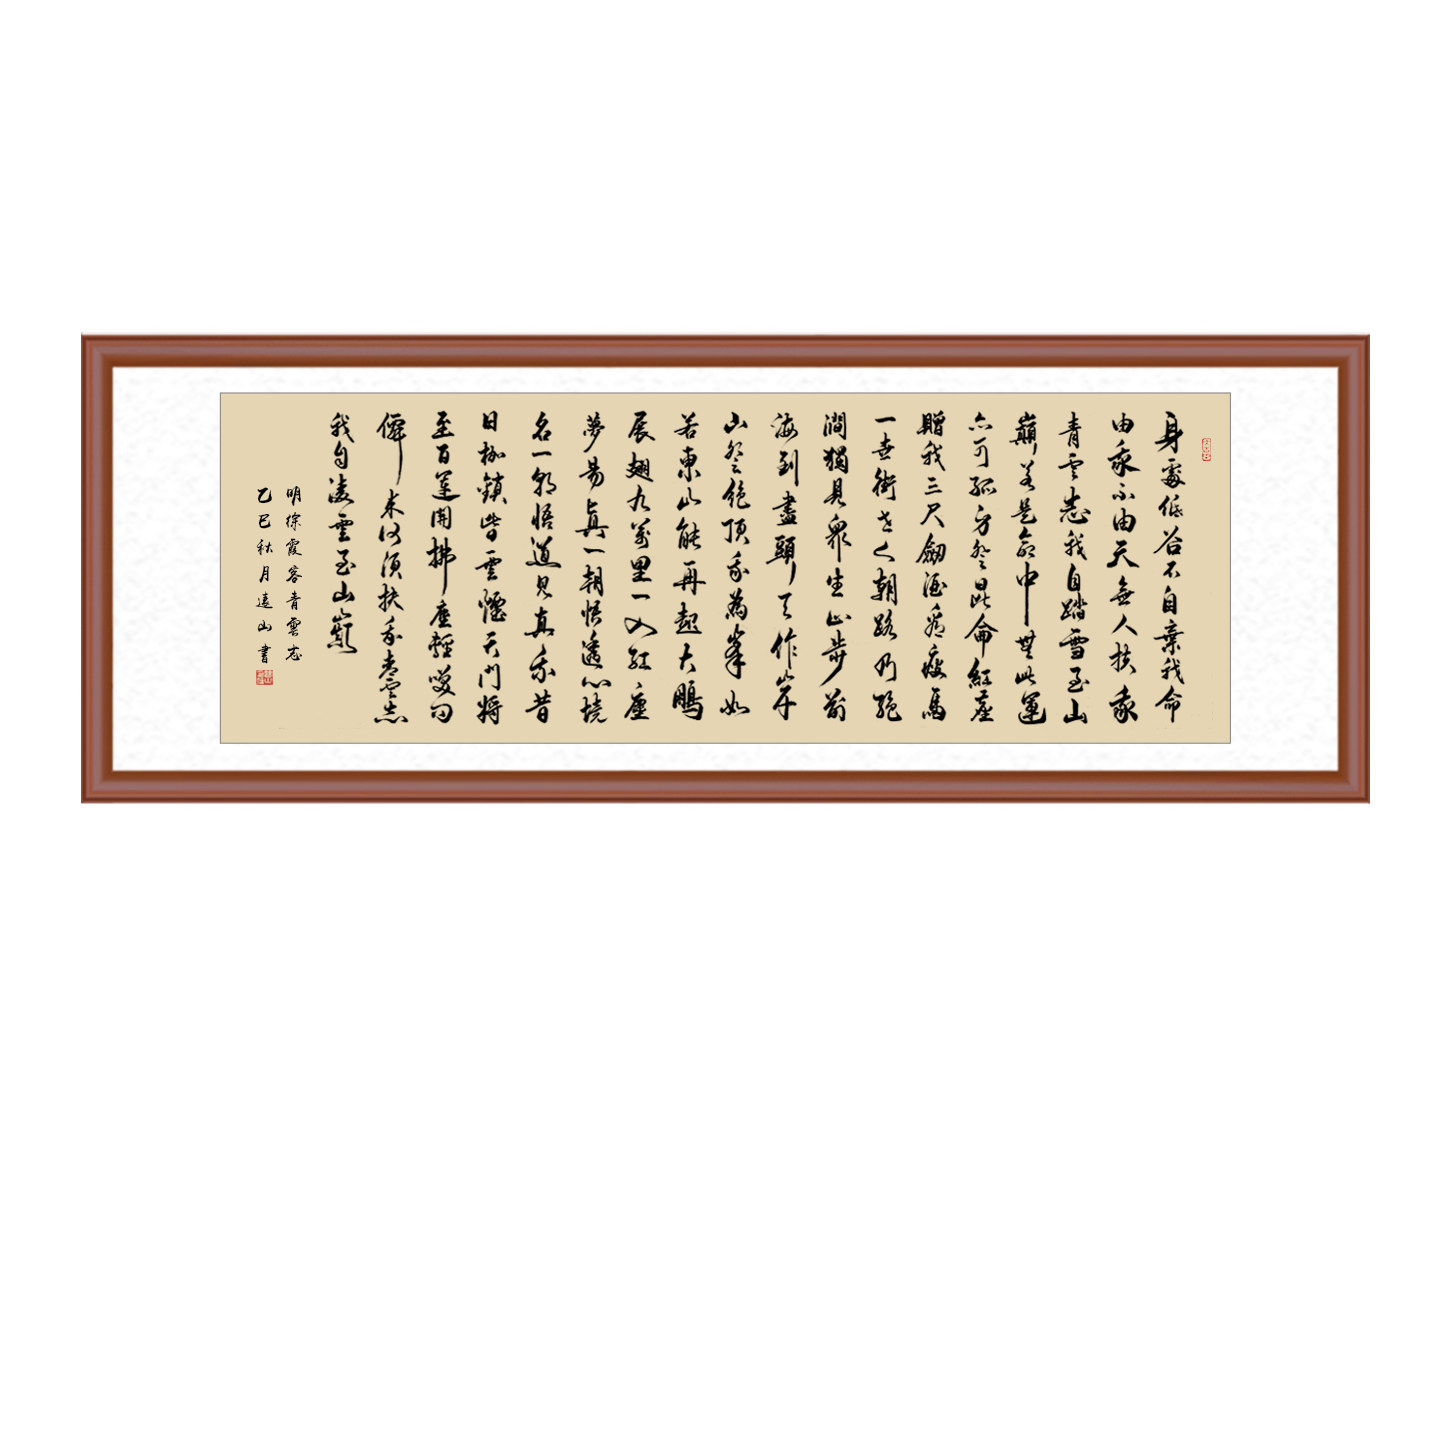 身處低谷不自棄我命
由我不由天無人扶我
青雲志我自踏雪至山
巔若是命中無此運
亦可孤身登昆侖紅塵
贈我三尺劍酒瘦馬
一壺街朝路乃絕
澗獨見眾生止步前
海到盡頭天作岸
山登絕頂我為峯如
若東山能再起大鵬
展翅九萬里一入紅塵
夢易真一朝悟透心境
名一朝悟道見真我昔
日枷鎖皆雲煙天門將
至百蓮開拂塵輕笑問
僊來何須扶我青雲志
我自凌雲至山巔
明徐霞客青雲志
乙巳秋月遠山書